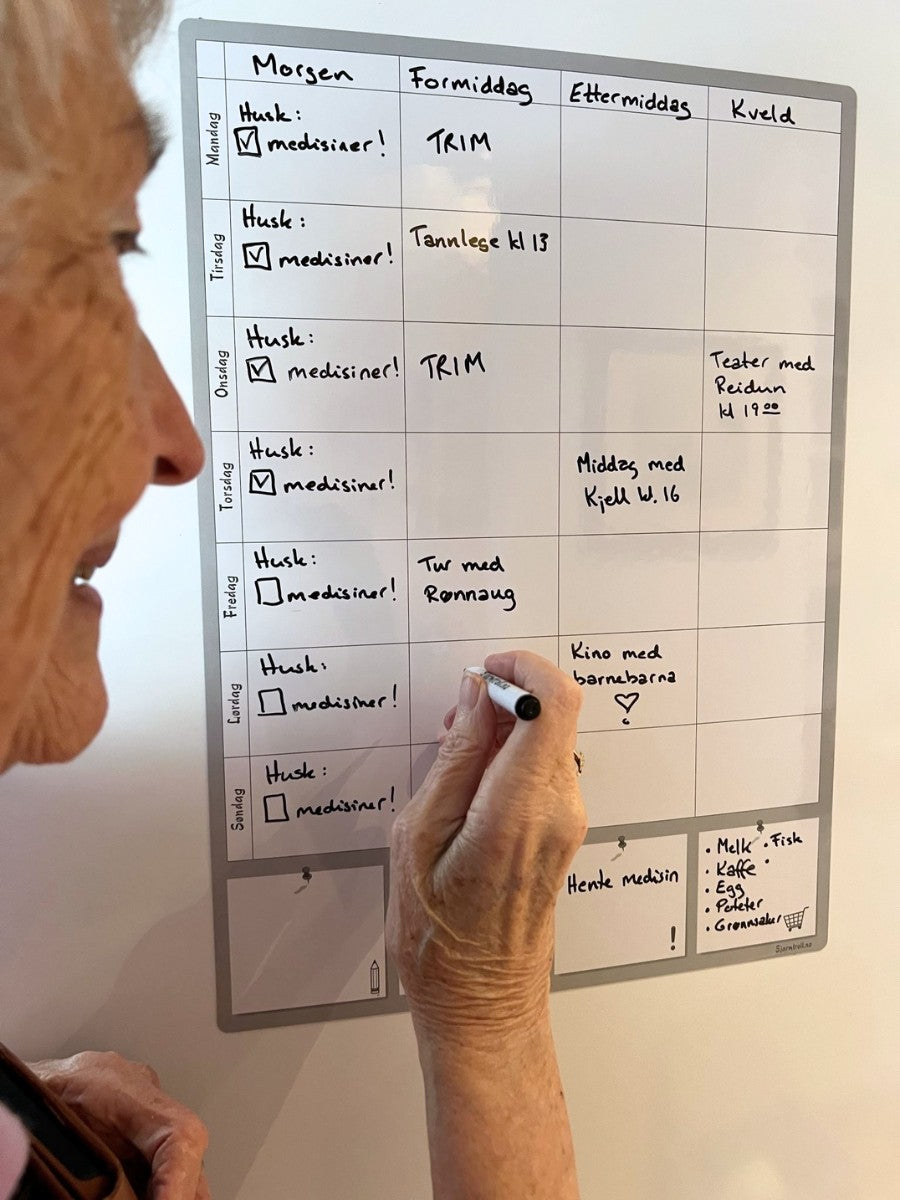 Morgen
Formiddag
Ettermiddag
Kveld
Mandag
Husk:
medisiner!
TRIM
Tirsdag
Husk:
medisiner!
Tannlege kl 13
Onsdag
Husk:
medisiner!
TRIM
Teater med
Reidun
kl 19⁰⁰
Torsdag
Husk:
medisiner!
Middag med
Kjell kl. 16
Fredag
Husk:
medisiner!
Tur med
Rønnaug
Lørdag
Husk:
medisiner!
Kino med
barnebarna
Søndag
Husk:
medisiner!
Hente medisin
!
• Melk • Fisk
• Kaffe •
• Egg
• Poteter
• Grønnsaker